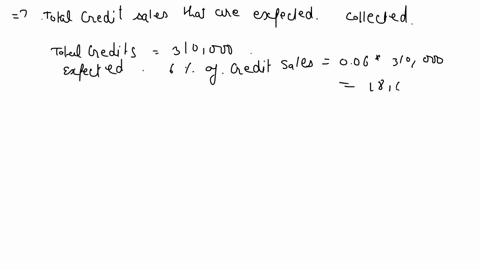 => Total Credit sales that are expected. Collected.
Total Credits = 310,000.
Expected. 6 % of. Credit sales = 0.06 * 310,000
= 18,(